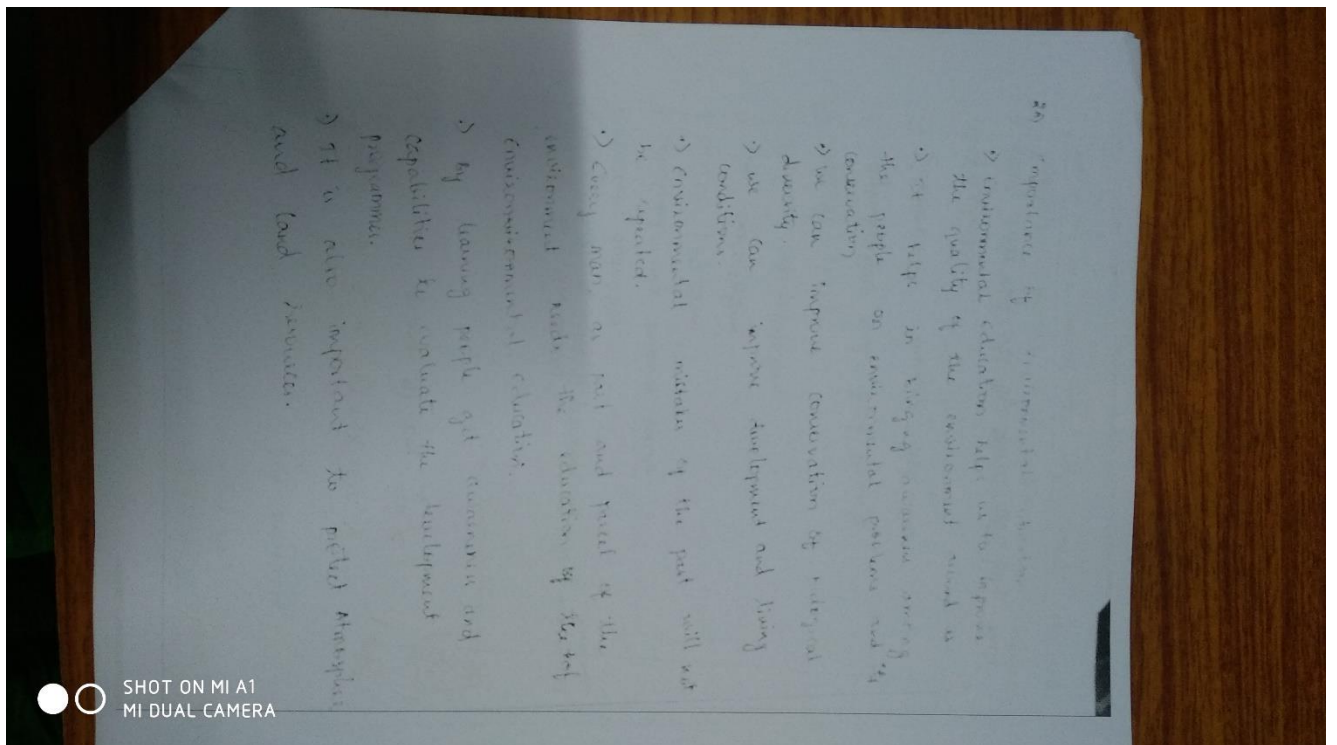 2a) importance of environmental
•) environmental education helps us to improve
the quality of the environment around us
•) It helps in bringing awareness among
the people on environmental problems and
conservation
•) we can improve conservation of
diversity.
•) we can improve development and living
conditions.
•) environmental mistakes of the past will not
be repeated.
•) every man, a part and parcel of the
environment needs the education of
education.
•) By learning people get awareness and
capabilities to evaluate the development
programmes.
•) It is also important to protect Atmosphere
and Land
SHOT ON MI A1
MI DUAL CAMERA